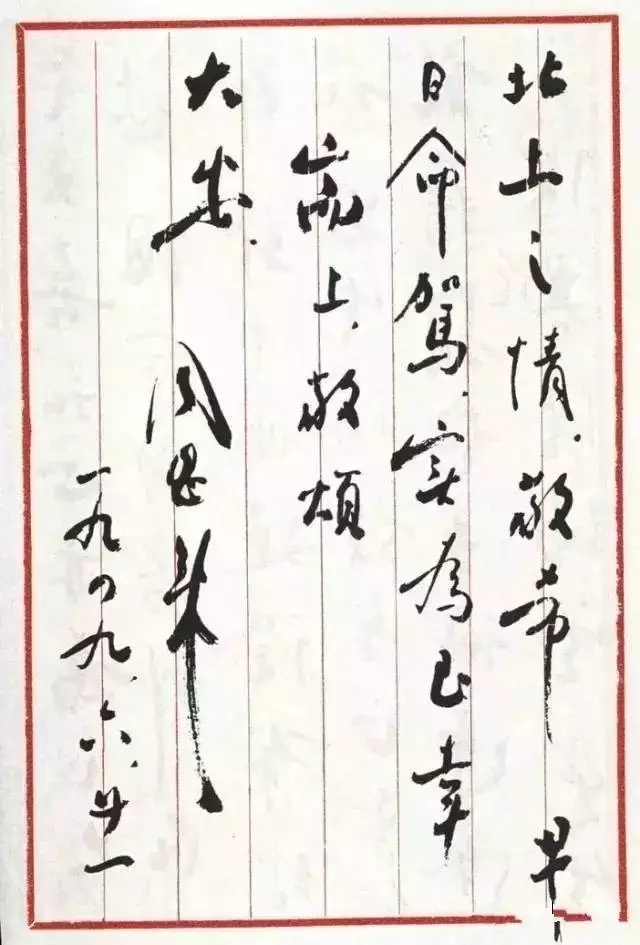 北上之情敬希早
日命駕实為至幸
耑上敬頌
大安
周恩来
一九四九、六、廿一